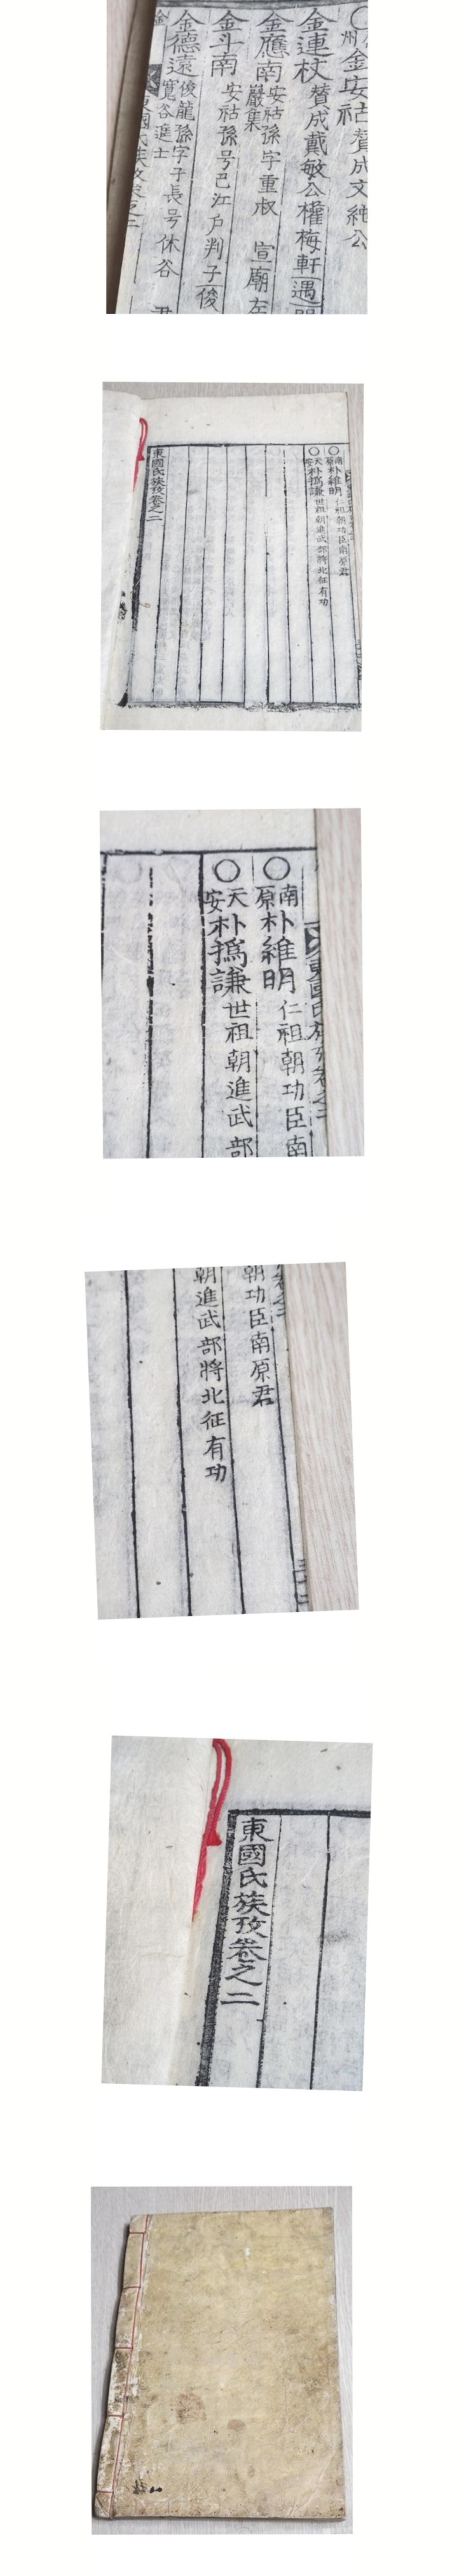 州 金安祜 贊成文純公
金連枝 贊成戴敏公權梅軒遇
金應南 安祜孫字重叔 宣廟左
巖集
金斗南 安祜孫号巳江戶判子俊
金德遠 俊龍孫字子長号休谷
寬谷進士
金
東國氏族攷卷之二
南原 朴維明 仁祖朝功臣南原君
天安 朴撝謙 世祖朝進武部將北征有功
東國氏族攷卷之二
東國氏族攷卷之二
南原 朴維明 仁祖朝功臣南
天安 朴撝謙 世祖朝進武部
朝功臣南原君
朝進武部將北征有功
東國氏族攷卷之二